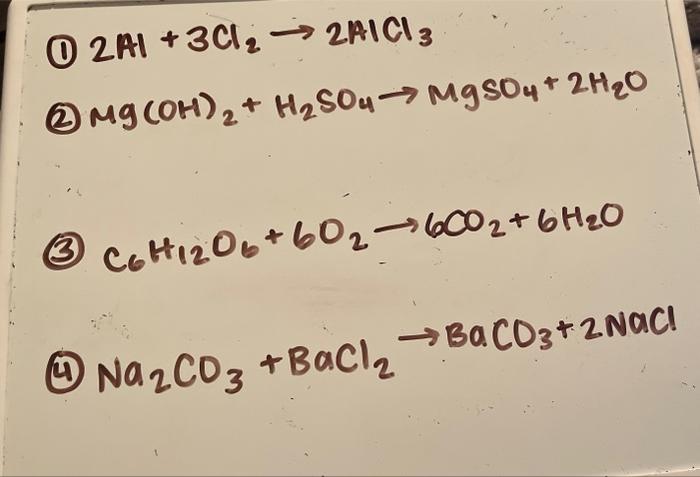 ① 2Al + 3Cl₂ → 2AlCl₃
② Mg(OH)₂ + H₂SO₄ → MgSO₄ + 2H₂O
③ C₆H₁₂O₆ + 6O₂ → 6CO₂ + 6H₂O
④ Na₂CO₃ + BaCl₂ → BaCO₃ + 2NaCl